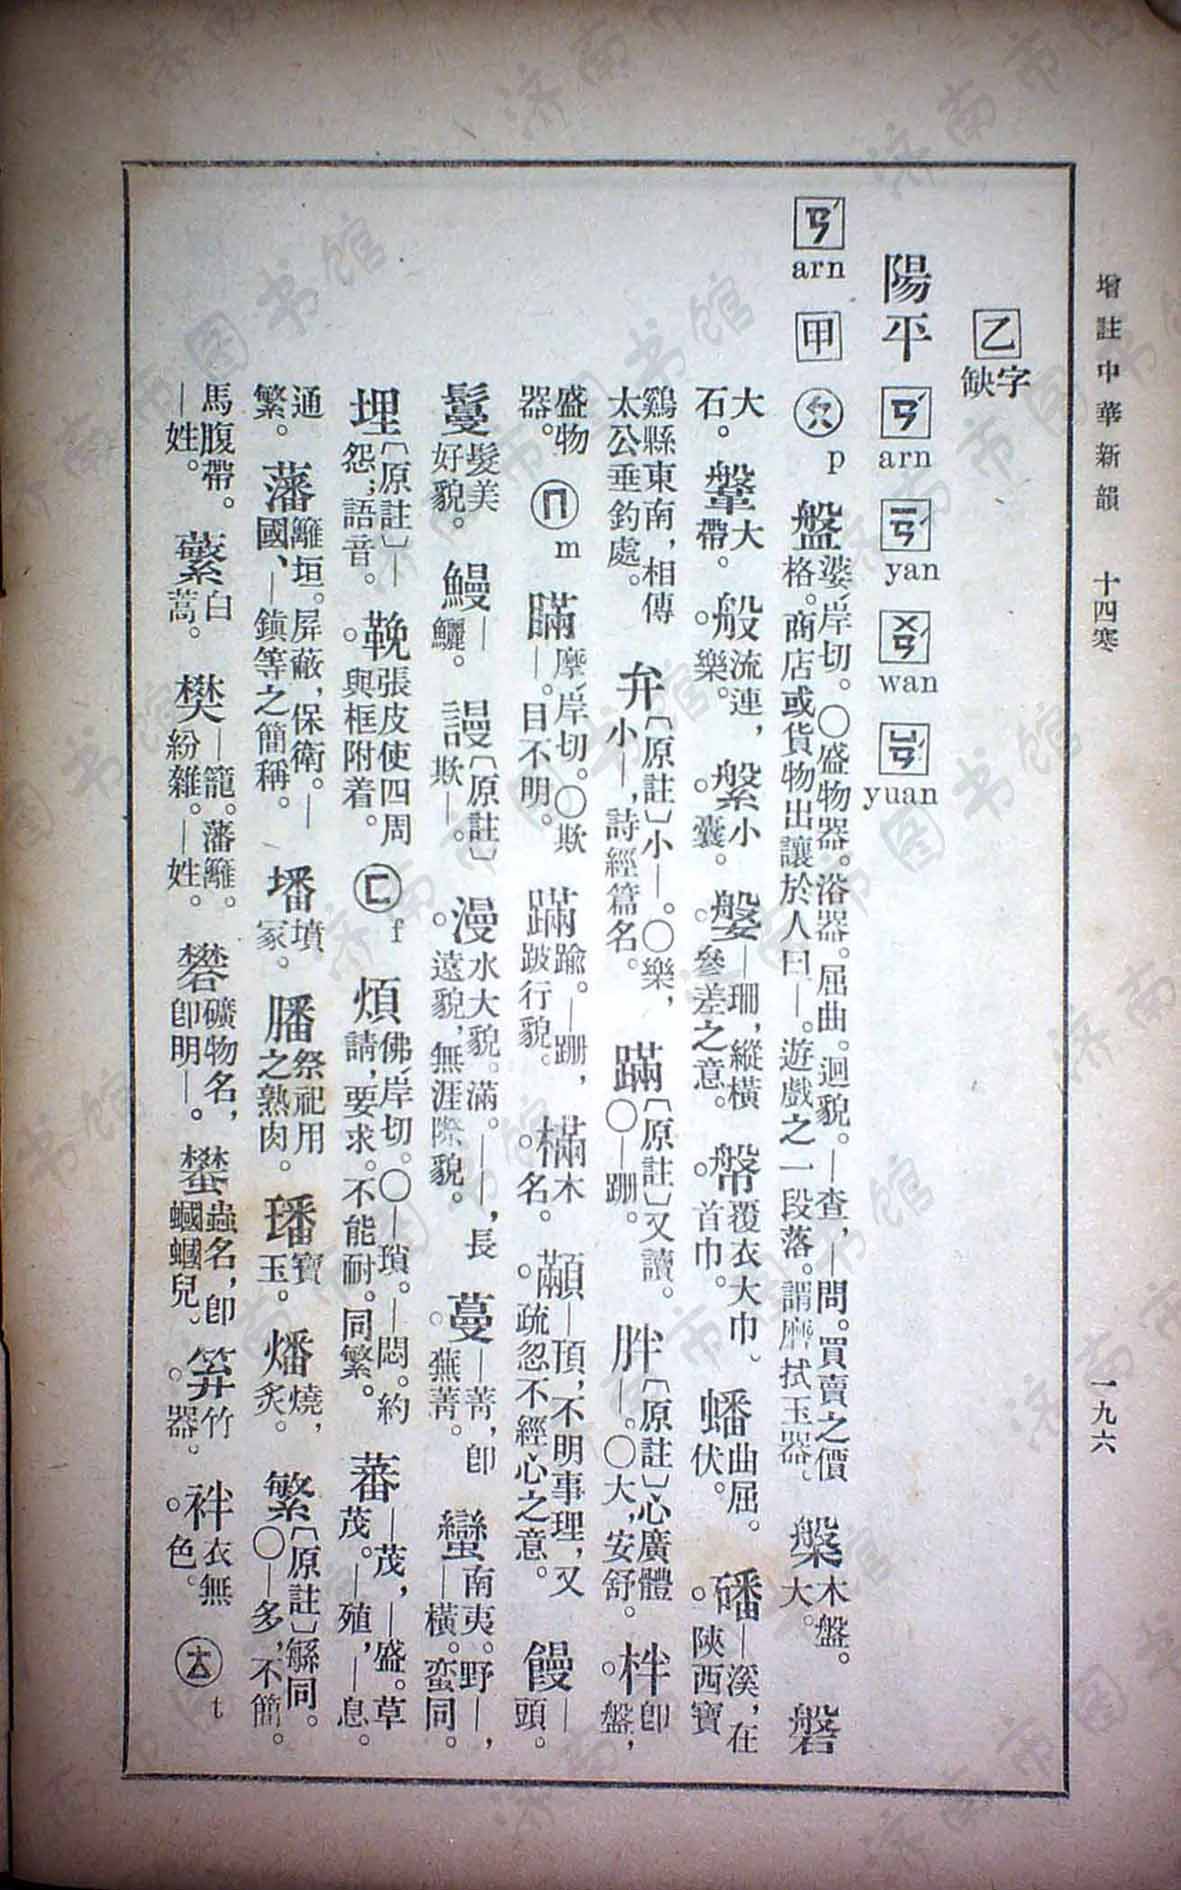 增註中華新韻 十四寒 一九六
乙 缺字
陽平 ㄢˊ arn ㄧㄢˊ yan ㄨㄢˊ wan ㄩㄢˊ yuan
ㄢˊ arn 甲 ㄆ p 盤 婆岸切。〇盛物器。浴器。屈曲。迴貌。—查，—問。買賣之價格。商店或貨物出讓於人曰—。遊戲之一段落。謂磨拭玉器。 槃 木盤。大。 磐
大石。 鞶 大帶。 般 流連，樂。 縏 小囊。 媻 —珊，縱橫參差之意。 幋 覆衣大巾、首巾。 蟠 曲屈。伏。 磻 —溪，在陝西寶
鷄縣東南，相傳太公垂釣處。 弁 〔原註〕小—。〇樂，小—，詩經篇名。 蹣 〔原註〕又讀。〇—跚。 胖 〔原註〕心廣體—。〇大，安舒。 柈 卽盤，
盛物器。 ㄇ m 瞞 摩岸切。〇欺—。目不明。 蹣 踰。—跚，跛行貌。 樠 木名。 顢 —頇，不明事理，又疏忽不經心之意。 饅 —頭。
鬘 髮美好貌。 鰻 —鱺。 謾 〔原註〕欺—。 漫 水大貌。滿。——，長遠貌，無涯際貌。 蔓 —菁，卽蕪菁。 蠻 南夷。野—，—橫。蛮同。
埋 〔原註〕—怨；語音。 鞔 張皮使四周與框附着。 ㄈ f 煩 佛岸切。〇—瑣。—悶。約請，要求。不能耐。同繁。 蕃 —茂，—盛。草茂。—殖，—息。
通繁。 藩 籬垣。屏蔽，保衛。—國、—鎮等之簡稱。 墦 墳冢。 膰 祭祀用之熟肉。 璠 寶玉。 燔 燒，炙。 繁 〔原註〕緐同。〇—多，不簡。
馬腹帶。—姓。 蘩 白蒿。 樊 —籠。藩籬。紛雜。—姓。 礬 礦物名，卽明—。 蠜 蟲名，卽蟈蟈兒。 笲 竹器。 袢 衣無色。 ㄊ t